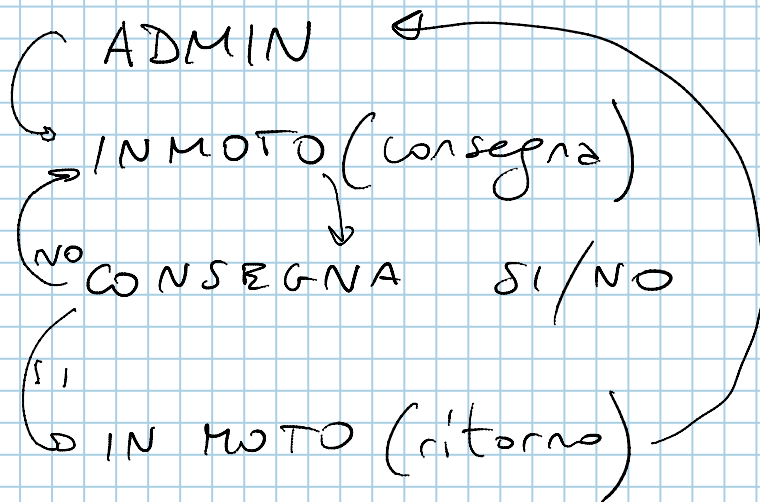 ADMIN
IN MOTO (consegna)
NO
CONSEGNA SI/NO
SI
IN MOTO (ritorno)